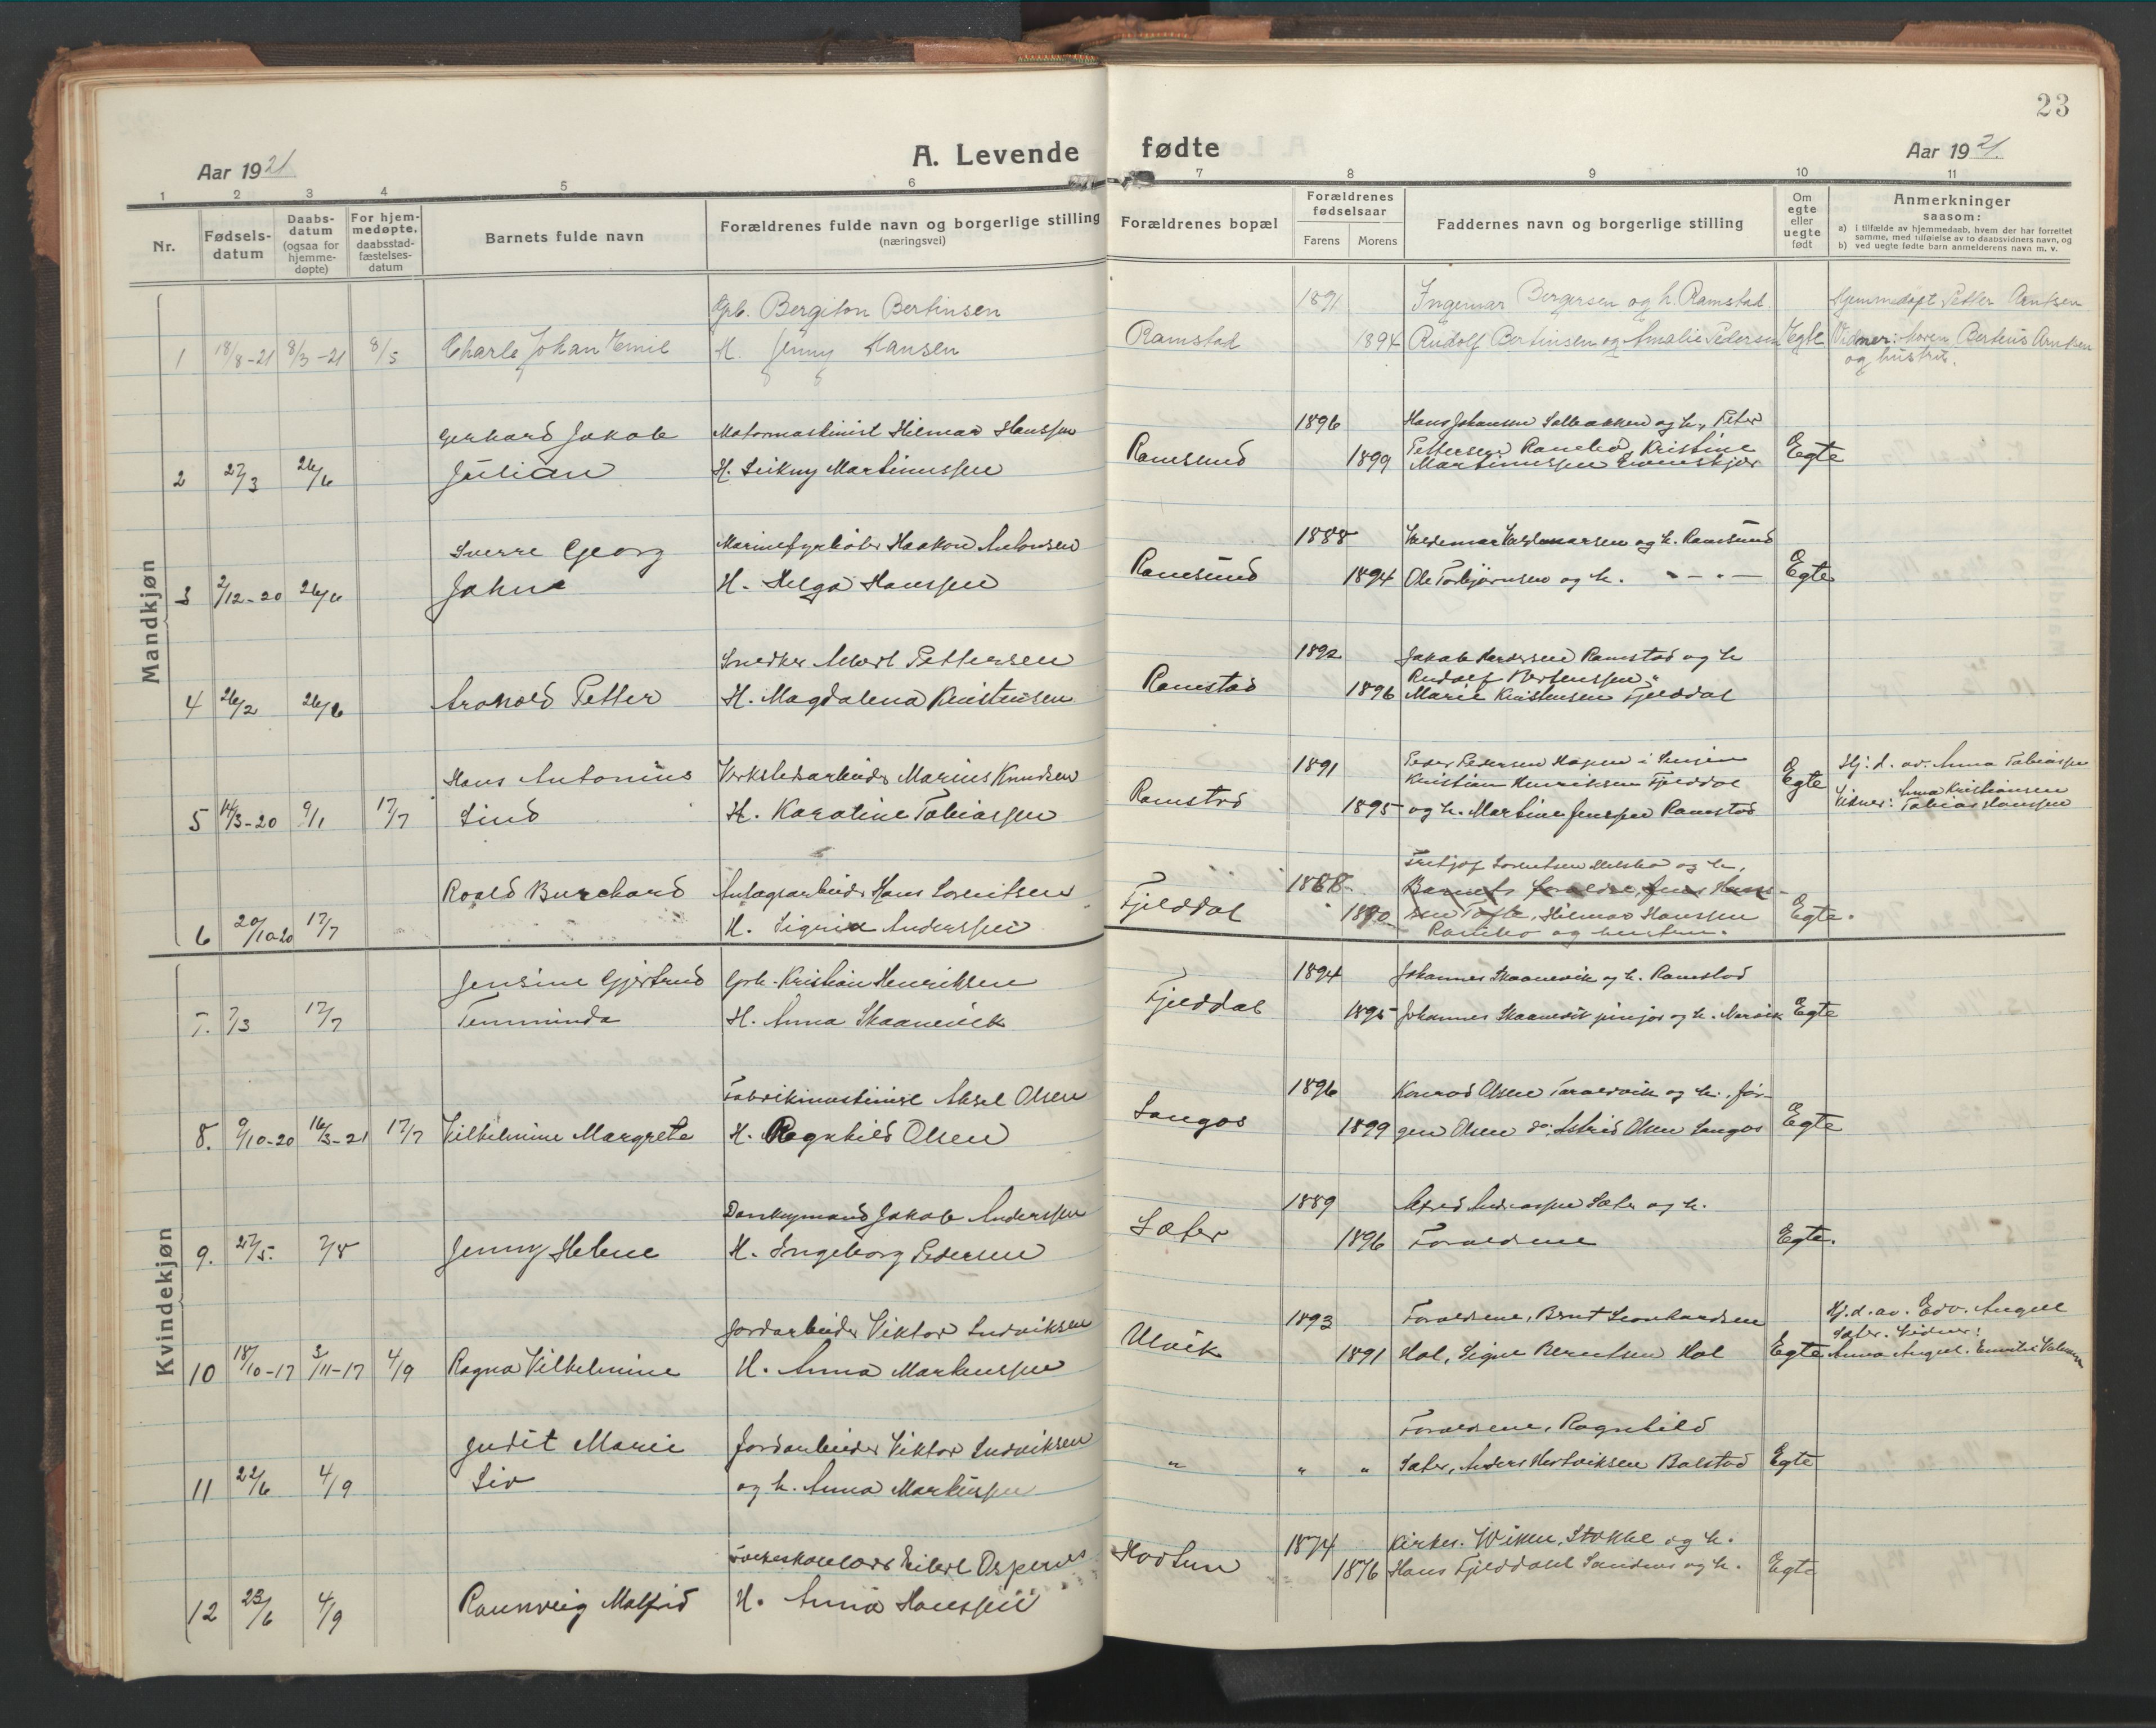 23
A. Levende fødte
Aar 1921
Aar 1921.
1 2 3 4 5 6 7 8 9 10 11
Nr.
Fødselsdatum
Daabsdatum (ogsaa for hjemmedøpte)
For hjemmedøpte, daabsstadfæstelsesdatum
Barnets fulde navn
Forældrenes fulde navn og borgerlige stilling (næringsvei)
Forældrenes bopæl
Forældrenes fødselsaar
Farens Morens
Faddernes navn og borgerlige stilling
Om egte eller uegte født
Anmerkninger saasom:
a) i tilfælde av hjemmedaab, hvem der har forrettet samme, med tilføielse av to daabsvidners navn, og
b) ved uegte fødte barn anmelderens navn m. v.
Mandkjøn
Grb. Bergiton Bertinsen 1891 Ingemar Bergersen og h. Ramstad Hjemmedøpt Petter Arntsen
1 18/8-21 8/3-21 8/5 Charle Johan Emil H. Jenny Hansen Ramstad 1894 Rudolf Bertinsen og Amalie Pedersen Egte Vidner: Berteus Arntsen
og hustru.
Gerhard Jakob Motormaskinist Hilmar Hanssen 1896 Hans Johansen Solbakken og h., Peter
2 27/3 26/6 Julian H. Martinussen Ramsund 1899 Pettersen Kristine Egte
Martinussen
Sverre Georg Haakon Antonsen 1888 Valdemar Valdemarsen og h. Ramsund
3 2/12-20 26/6 John H. Helga Hanssen Ramsund 1894 Ole Torbjørnsen og h. " - " - Egte
Snedker Albert Pettersen 1892 Jakob Ramstad og h
4 26/2 26/6 Arnold Petter H. Magdalena Kristensen Ramstad Rudolf Bertinssen "
1896 Marie Kristensen Fjelddal
Hans Antonius Verkstedarbeider Marius Knudsen 1891 Peder Pedersen i Senjen Hj. d. av. Anna Tobiassen
5 14/3-20 9/1 17/7 Lind H. Karoline Tobiassen Ramstad Kristian Henriksen Fjelddal Egte
1895 og h. Martine Jenssen Ramstad Vidner: Anna Kristiansen
Tobias Hanssen
Roald Burchard Anlægsarbeider Hans Lorentsen 1888 Fritjof Lorentsen og h,
6 20/10-20 17/7 H. Anderssen Fjelddal Barnets forældre, Jens
1890 Hilmar Hanssen Egte.
Rambø og hustru.
Kvindekjøn
Jensine Gjertrud Grb. Kristian Henriksen 1894 Johannes Skaanevik og h. Ramstad
7. 7/3 17/7 H. Anna Skaanevik Fjelddal 1895 Johannes Skaanevik junior og h. Narvik Egte
Fabrikmaskinist Aksel Olsen 1896 Konrad Olsen Taraldvik og h., Jør-
8. 9/10-20 16/3-21 17/7 Vilhelmine Margrete H. Ragnhild Olsen Sangos 1899 gen Olsen do, Astrid Olsen Sangos Egte
Donkeymand Jakob Anderssen 1889 Alfred Andreassen Sæter og h.
9. 27/5. 7/8 Jenny Helene H. Ingeborg Pedersen Sæter 1896 Forældrene Egte.
Jordarbeider Viktor Ludviksen 1893 Forældrene, Bernt Leonhardsen Hj. d. av. Edv. Angel
Sæter. Vidner:
10 18/10-17 3/11-17 4/9 Ragna Vilhelmine H. Anna Markussen Ulvik 1891 Hol, Signe Berntsen Hol Egte Anna Angel.
Judit Marie Jordarbeider Viktor Ludviksen Forældrene, Ragnhild
11 22/6 4/9 Liv og h. Anna Markussen " " " Sæter, Anders Hertviksen Balstad Egte
Folkeskolelærer Eilert Ospenes 1874 Kirkes. Wiken, Stokke og h.
12 23/6 4/9 Raunveig Malfrid H. Anna Hanssen 1876 Hans Fjelddahl Sandnes og h. Egte